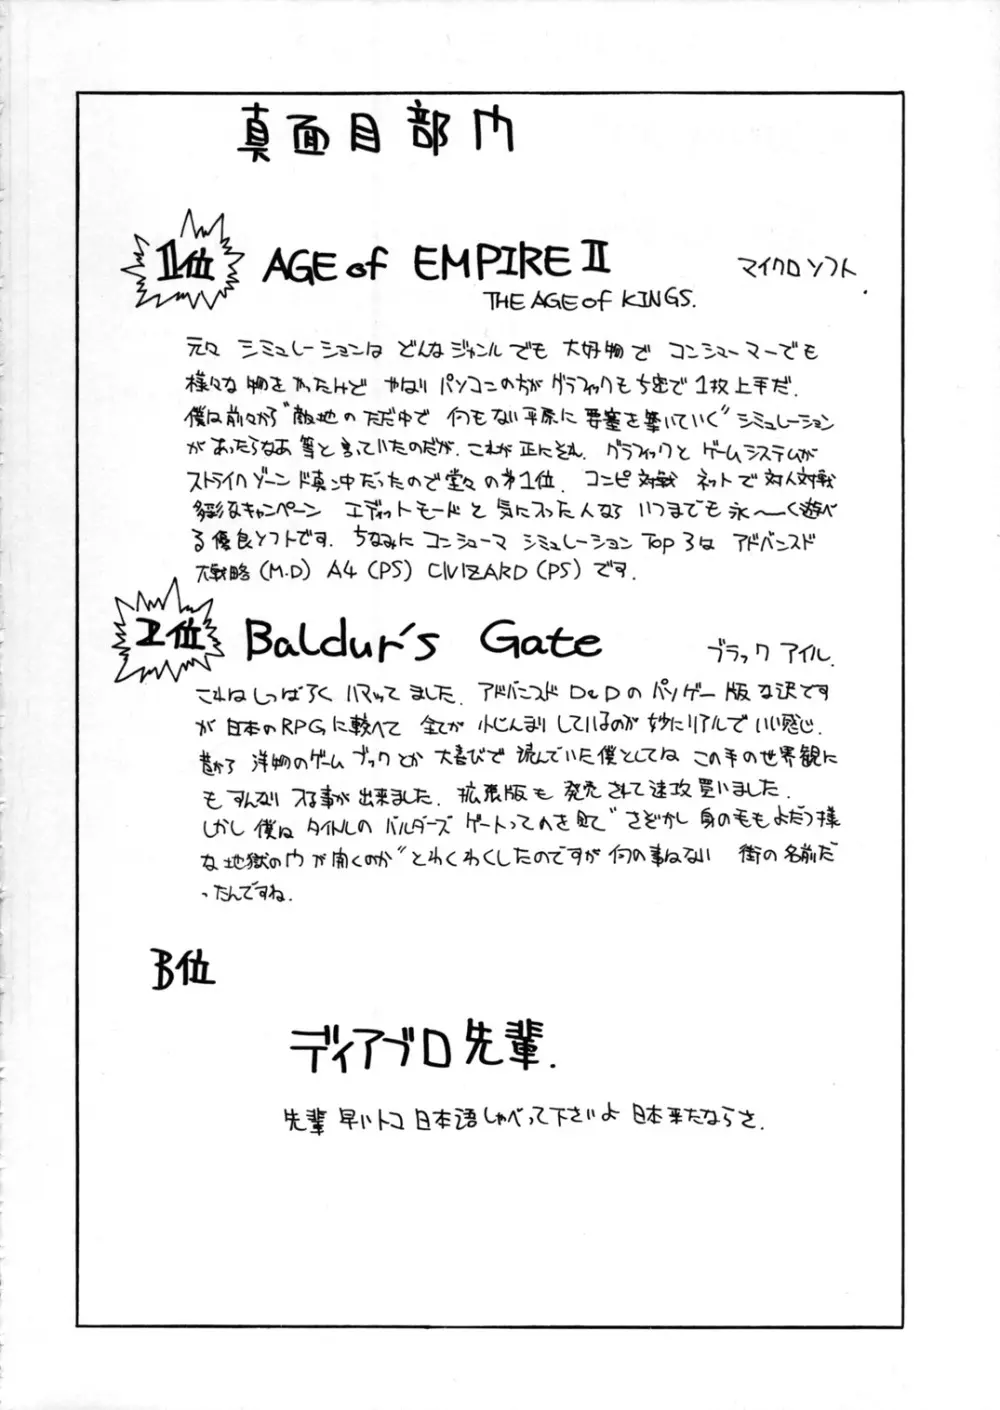 真面目部門
1位 AGE of EMPIRE II マイクロソフト.
THE AGE of KINGS.
元々 シミュレーションは どんなジャンルでも 大好物で コンシューマーでも
様々な物をやったけど やはり パソコンの方が グラフィックも ち密で 1枚上手だ.
僕は前々から "敵地の ただ中で 何もない平原に 要塞を築いていく" シミュレーション
があったらなあ 等と言っていたのだが、これが正にそれ. グラフィックと ゲームシステムが
ストライクゾーン ド真ン中だったので堂々の第1位. コンピ対戦 ネットで 対人対戦
多彩なキャンペーン エディットモードと 気に入った人なら いつまでも 永〜く遊べ
る優良ソフトです. ちなみに コンシューマ シミュレーション Top 3は アドバンスド
大戦略 (M.D) A4 (PS) CIVIZARD (PS) です.
2位 Baldur's Gate ブラック アイル.
これは しっばらく ハマッてました. アドバンスド D&Dの パソゲー版な訳です
が 日本のRPGに較べて 全てが 小じんまりしているのが 妙にリアルで いい感じ.
昔から 洋物のゲーム ブックとか 大喜びで 読んでいた僕としては この手の世界観に
も すんなり 入る事が 出来ました. 拡張版も 発売されて 速攻 買いました.
しかし 僕は タイトルの バルダーズ ゲートってのを見て "さぞかし 身の毛もよだつ様
な 地獄の門が開くのか" と わくわくしたのですが 何の事はない 街の名前だ
ったんですね.
B位
ディアブロ先輩.
先輩 早いトコ 日本語しゃべって下さいよ 日本来たならさ.